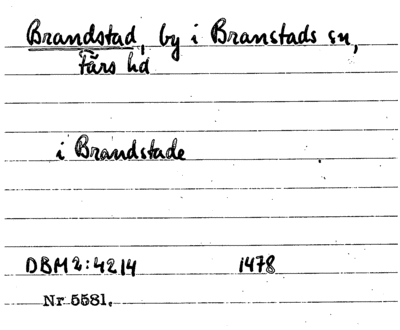 Brandstad, by i Branstads sn,
Färs hd
i Brandstade
DBM2:4214 1478
Nr 5581.